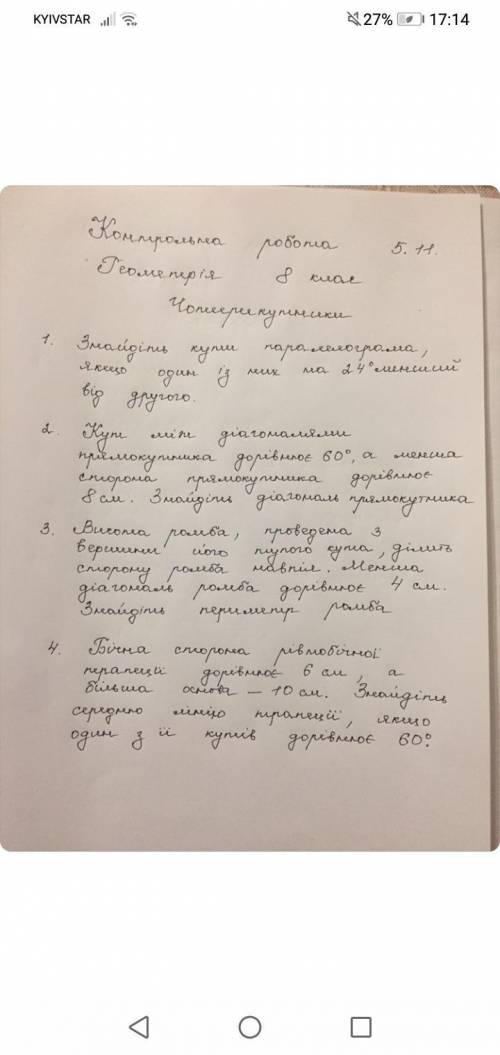 KYIVSTAR 27% 17:14
Контрольна робота 5.11.
Геометрія 8 клас
Чотирикутники
1. Знайдіть кути паралелограма,
якщо один із них на 24° менший
від другого.
2. Кут між діагоналями
прямокутника дорівнює 60°, а менша
сторона прямокутника дорівнює
8 см. Знайдіть діагональ прямокутника
3. Висота ромба, проведена з
вершини його тупого кута, ділить
сторону ромба навпіл. Менша
діагональ ромба дорівнює 4 см.
Знайдіть периметр ромба
4. Бічна сторона рівнобічної
трапеції дорівнює 6 см, а
більша основа – 10 см. Знайдіть
середню лінію трапеції, якщо
один з її кутів дорівнює 60°.